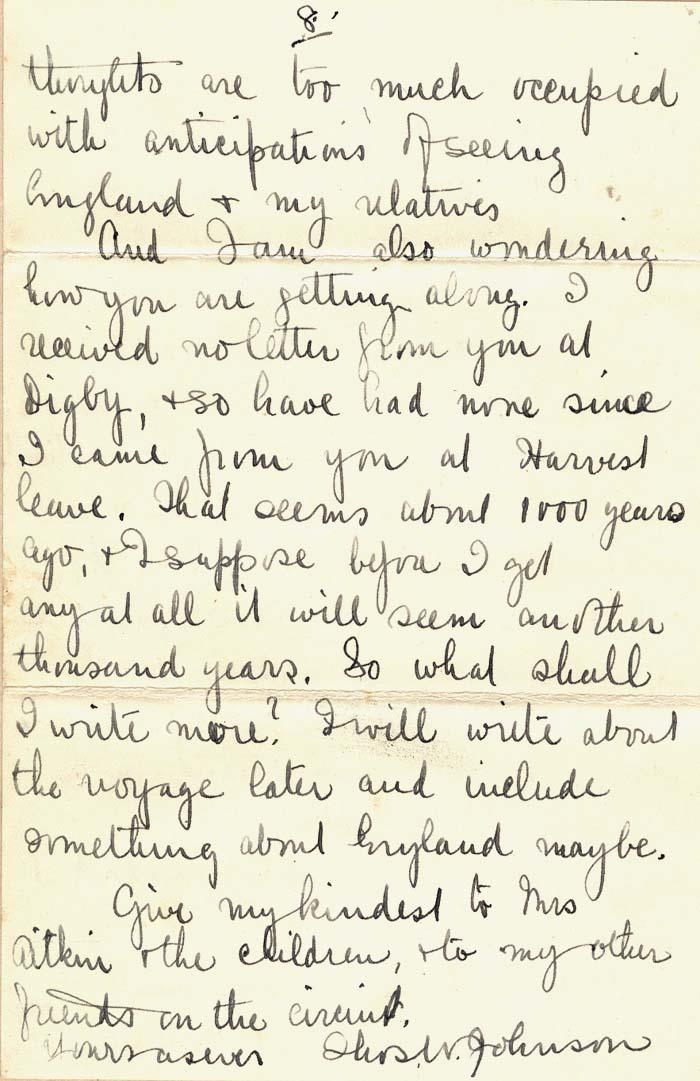 8.
thoughts are too much occupied
with anticipations of seeing
England & my relatives
And I am also wondering
how you are getting along. I
received no letter from you at
Digby, & so have had none since
I came from you at Harvest
leave. That seems about 1000 years
ago, & I suppose before I get
any at all it will seem another
thousand years. So what shall
I write more? I will write about
the voyage later and include
something about England maybe.
Give my kindest to Mrs
Aitkin & the children, & to my other
friends on the circuit.
Yours as ever Thos. W. Johnson